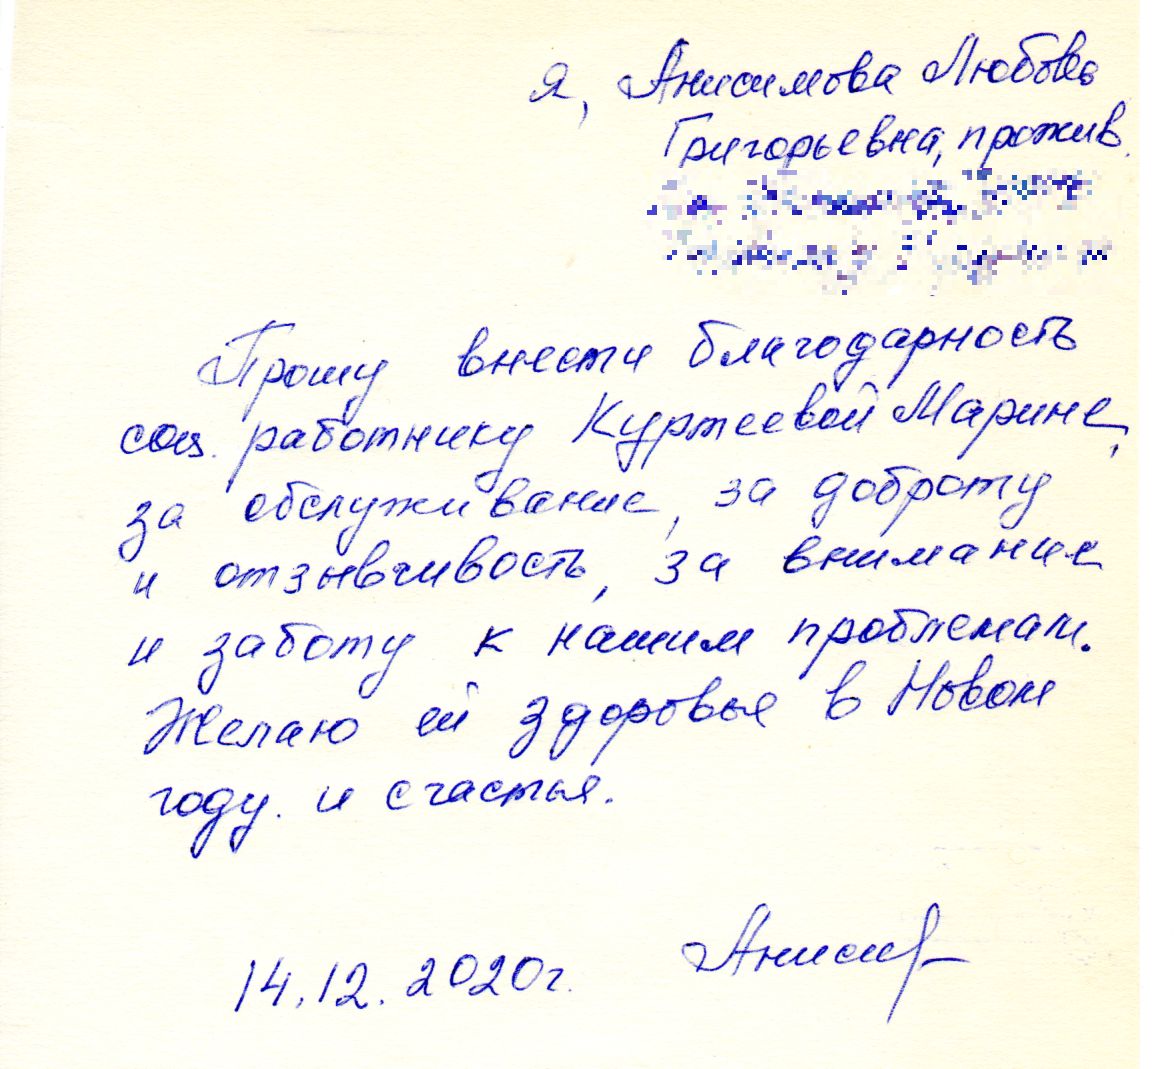 Я, Анисимова Любовь
Григорьевна, прожив.
Прошу внести благодарность
соц. работнику Куртеевой Марине,
за обслуживание, за доброту
и отзывчивость, за внимание
и заботу к нашим проблемам.
Желаю ей здоровья в Новом
году. и счастья.
14.12.2020г. Анисим